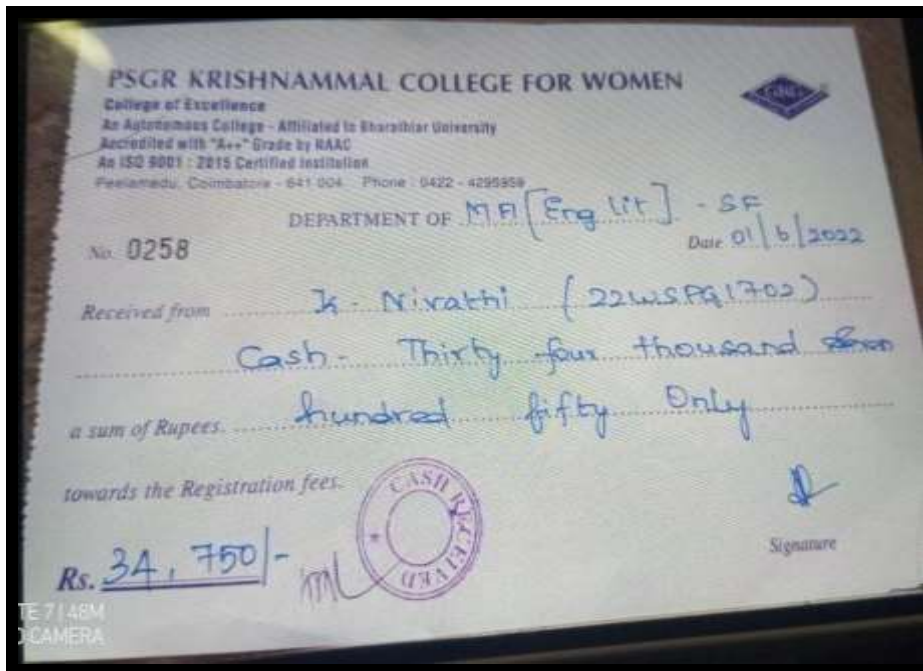 PSGR KRISHNAMMAL COLLEGE FOR WOMEN
College of Excellence
An Autonomous College - Affiliated to Bharathiar University
Accredited with "A++" Grade by NAAC
An ISO 9001 : 2015 Certified Institution
Peelamedu, Coimbatore - 641 004. Phone : 0422 - 4295959
DEPARTMENT OF MA [Eng lit] - SF
No. 0258 Date 01/6/2022
Received from K. Nivathi (22WSPG1702)
Cash - Thirty four thousand seven
a sum of Rupees. hundred fifty Only
towards the Registration fees.
CASH RECEIVED
Rs. 34,750/-
Signature
TE 7 | 48M
CAMERA